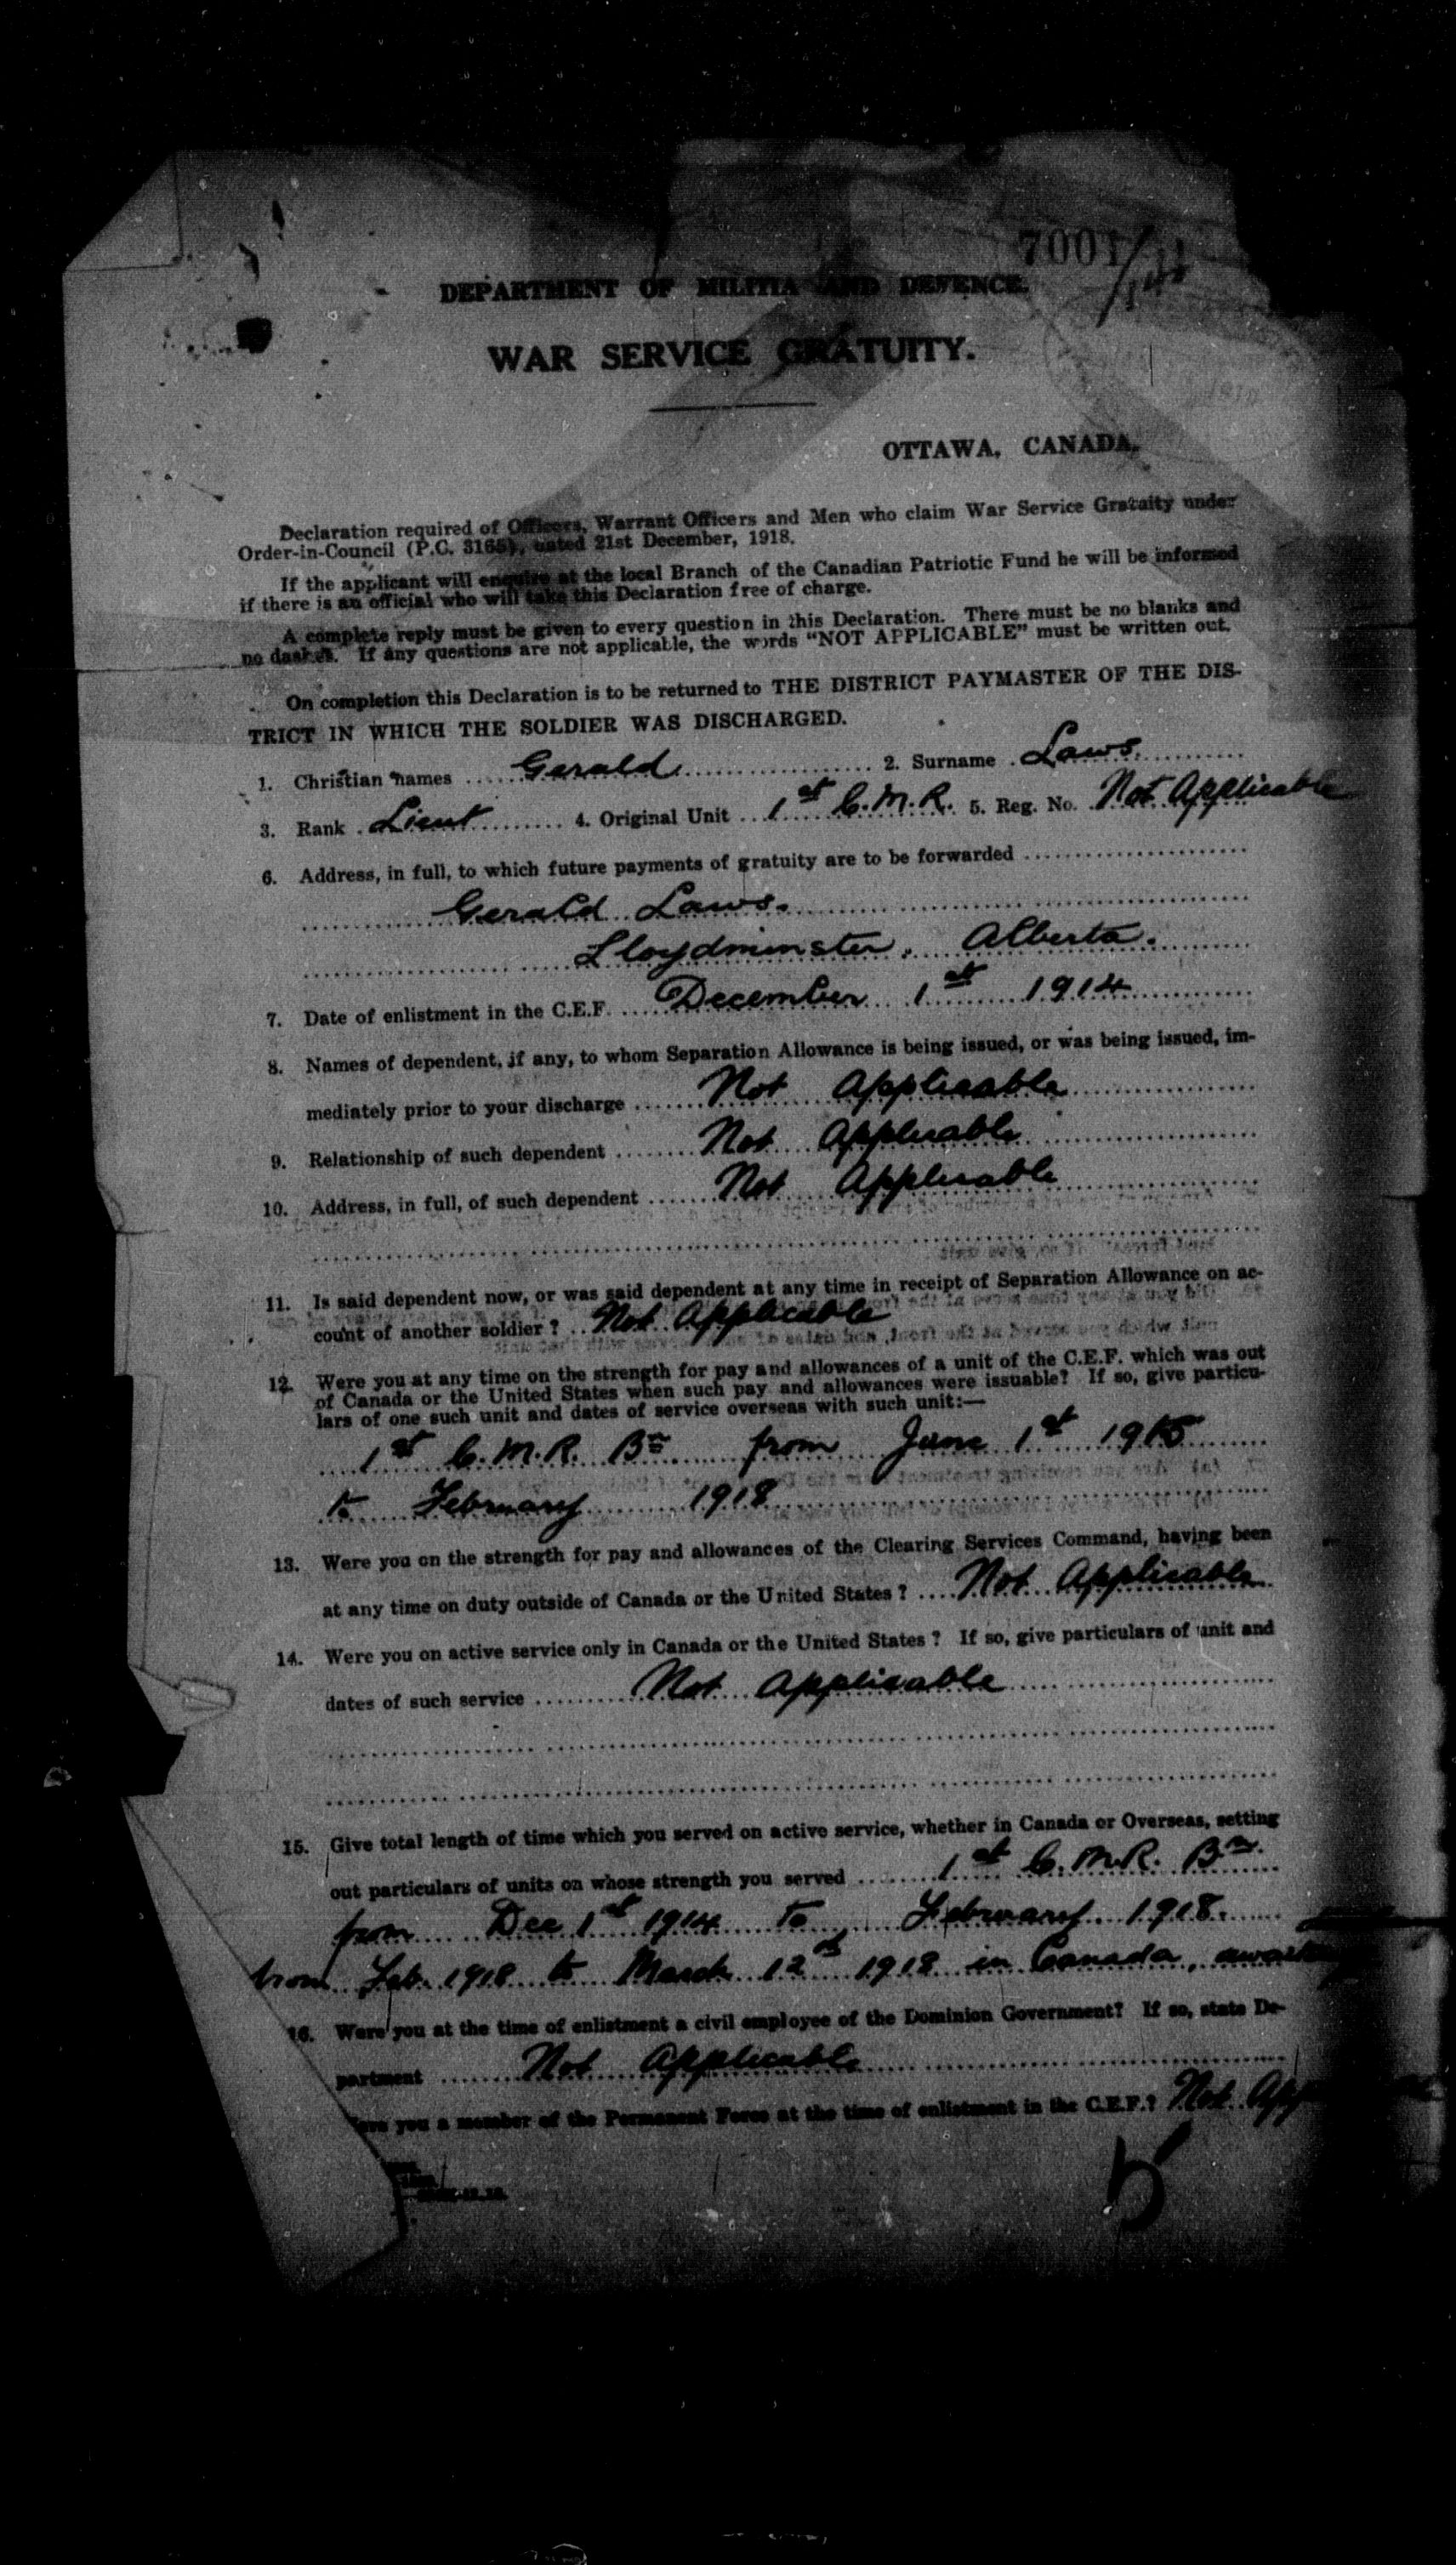 7001/
DEPARTMENT OF MILITIA AND DEFENCE.
WAR SERVICE GRATUITY.
OTTAWA, CANADA.
Declaration required of Officers, Warrant Officers and Men who claim War Service Gratuity under
Order-in-Council (P.C. 3165), dated 21st December, 1918.
If the applicant will enquire at the local Branch of the Canadian Patriotic Fund he will be informed
if there is an official who will take this Declaration free of charge.
A complete reply must be given to every question in this Declaration. There must be no blanks and
no dashes. If any questions are not applicable, the words "NOT APPLICABLE" must be written out.
On completion this Declaration is to be returned to THE DISTRICT PAYMASTER OF THE DIS-
TRICT IN WHICH THE SOLDIER WAS DISCHARGED.
1. Christian names Gerald 2. Surname Laws
3. Rank Lieut 4. Original Unit 1st C.M.R. 5. Reg. No. Not Applicable
6. Address, in full, to which future payments of gratuity are to be forwarded
Gerald Laws.
Lloydminster. Alberta.
7. Date of enlistment in the C.E.F. December 1st 1914
8. Names of dependent, if any, to whom Separation Allowance is being issued, or was being issued, im-
mediately prior to your discharge Not Applicable
9. Relationship of such dependent Not Applicable
10. Address, in full, of such dependent Not Applicable
11. Is said dependent now, or was said dependent at any time in receipt of Separation Allowance on ac-
count of another soldier? Not Applicable
12. Were you at any time on the strength for pay and allowances of a unit of the C.E.F. which was out
of Canada or the United States when such pay and allowances were issuable? If so, give particu-
lars of one such unit and dates of service overseas with such unit:—
1st C.M.R. Bn from June 1st 1915
to February 1918
13. Were you on the strength for pay and allowances of the Clearing Services Command, having been
at any time on duty outside of Canada or the United States? Not Applicable
14. Were you on active service only in Canada or the United States? If so, give particulars of unit and
dates of such service Not Applicable
15. Give total length of time which you served on active service, whether in Canada or Overseas, setting
out particulars of units on whose strength you served 1st C.M.R. Bn.
from Dec 1st 1914 to February 1918.
from Feb. 1918 to March 12th 1918 in Canada,
16. Were you at the time of enlistment a civil employee of the Dominion Government? If so, state De-
partment Not Applicable
you a member of the Permanent Force at the time of enlistment in the C.E.F.? Not App
5